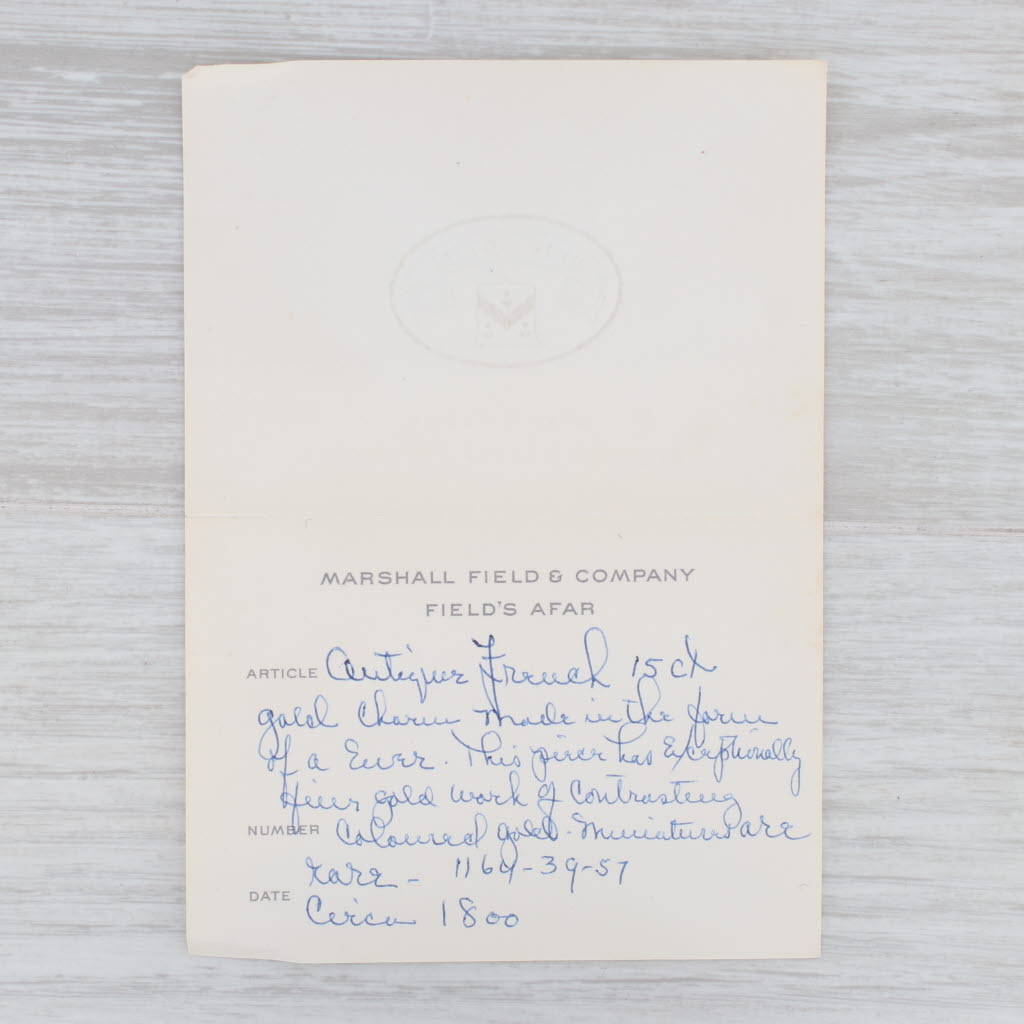 MARSHALL FIELD & COMPANY
FIELD'S AFAR
ARTICLE Antique French 15 ct
gold charm made in the form
of a Ewer. This piece has Exceptionally
fine gold work of Contrasting
NUMBER Coloured gold. Miniatures are
rare - 1164-39-57
DATE Circa 1800